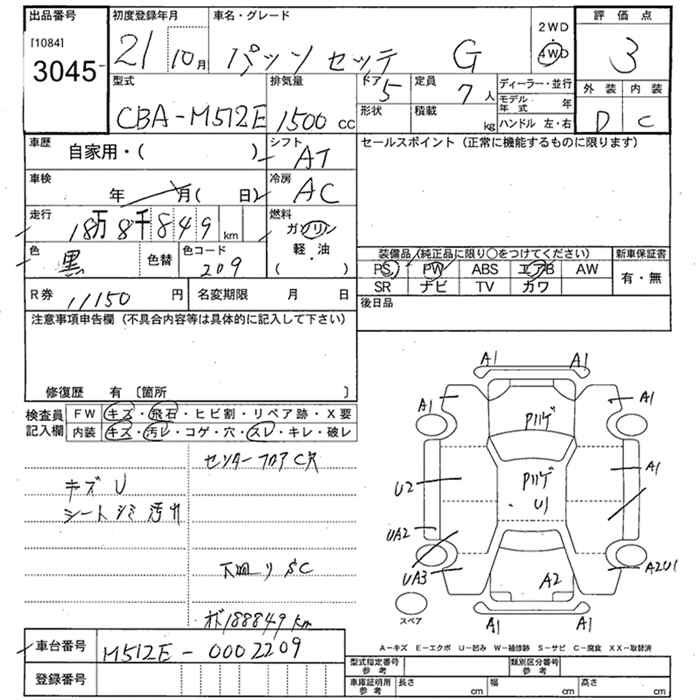 出品番号 初度登録年月 車名・グレード 評価点
[1084] 3045 21 10月 パッソ セッテ G 2WD 4WD 3
型式 排気量 ドア 5 定員 7人 ディーラー・並行 外装 内装
CBA-M512E 1500 cc 形状 積載 kg モデル年式 年 D C
ハンドル 左・右
車歴 自家用・( ) シフト AT セールスポイント (正常に機能するものに限ります)
車検 年 月( 日) 冷房 AC
走行 18万8千849 km 燃料 ガソリン
軽・油
( )
色 黒 色替 色コード 209
装備品(純正品に限り〇をつけてください) 新車保証書
PS PW ABS エアB AW 有・無
SR ナビ TV カワ
R券 11150 円 名変期限 月 日 後日品
注意事項申告欄 (不具合内容等は具体的に記入して下さい)
修復歴 有 〔箇所 〕
検査員記入欄 FW キズ・飛石・ヒビ割・リペア跡・X要
内装 キズ・汚レ・コゲ・穴・スレ・キレ・破レ
センターフロアC穴
キズ U
シートシミ汚れ
下回り SC
メーター188849km
A1 A1
A1 A1
Pハゲ
A1
U2 Pハゲ
U1
UA2
UA3 A2 A2U1
スペア
A1 A1
A-キズ E-エクボ U-凹み W-補修跡 S-サビ C-腐食 XX-取替済
車台番号 M512E-0002209
登録番号
型式指定番号 参考 類別区分番号 参考
車庫証明用 参考 長さ cm 幅 cm 高さ cm